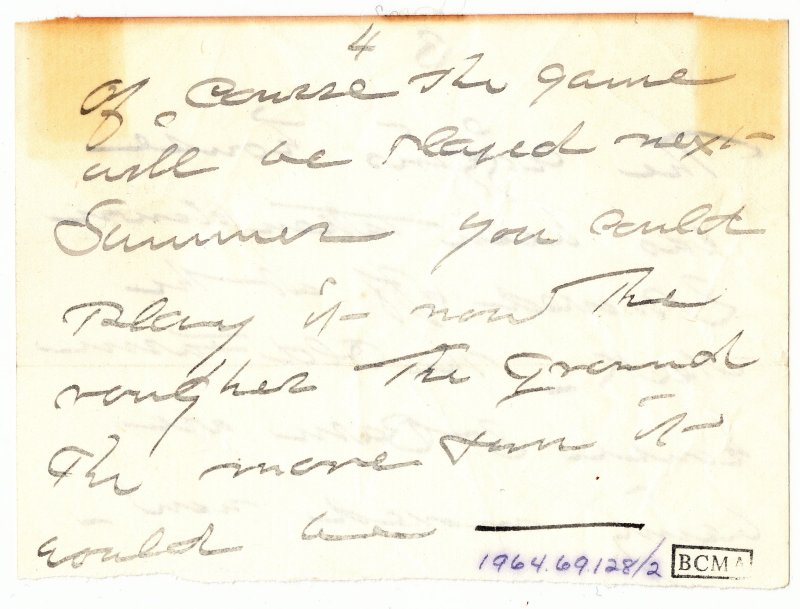 4
of course the game
will be played next
Summer you could
play it now the
rougher the ground
the more fun it
would be
1964.69.128/2 BCMA